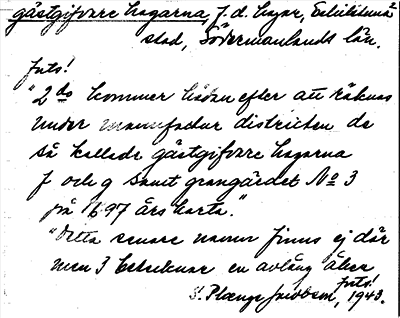 gästgifvare hagarna, f. d. hagar, Eskilstuna
stad, Södermanlands län.
fots!
"2do kommer hädan efter att räknas
under manufactur districten de
så kallade gästgifvare hagarna
f och g samt grangärdet No 3
på 1697 års karta."
"Detta senare namn finns ej där
men 3 betecknar en avlång åker
fots!
S. Plænge Jacobson, 1943.